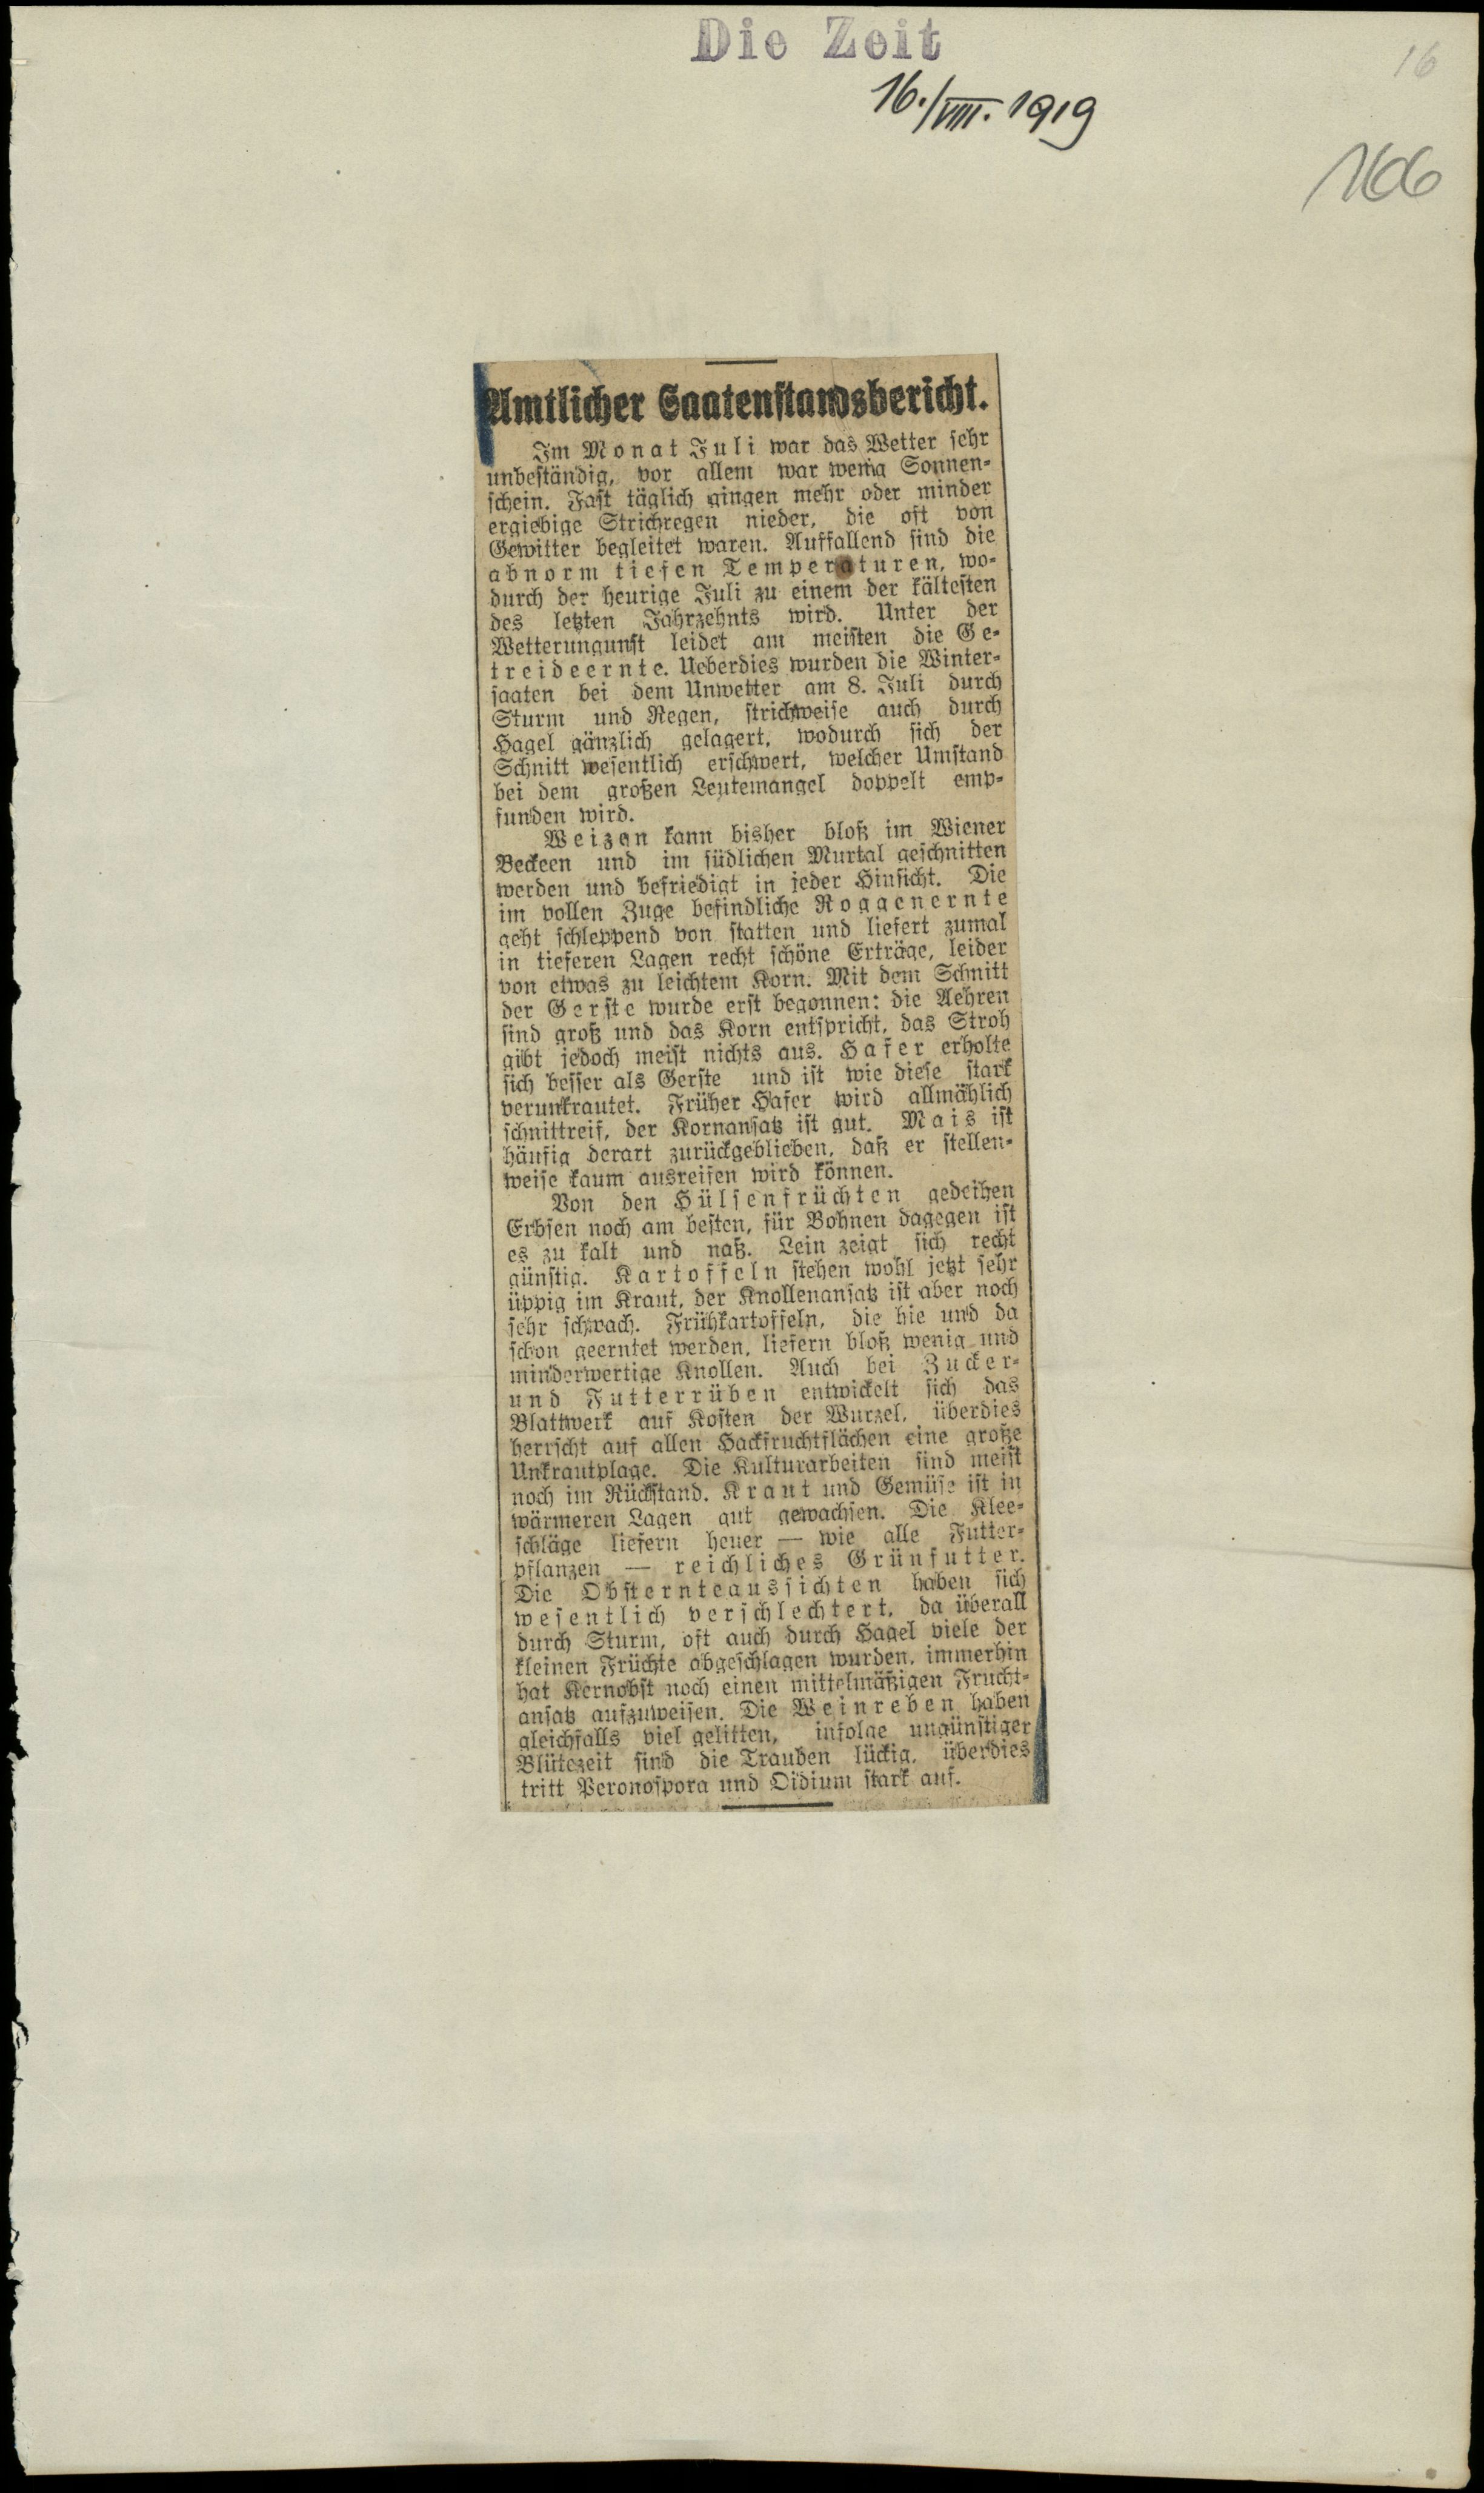 Die Zeit
16
16./VIII. 1919
166
Amtlicher Saatenstandsbericht.
Im Monat Juli war das Wetter sehr
unbeständig, vor allem war wenig Sonnen-
schein. Fast täglich gingen mehr oder minder
ergiebige Strichregen nieder, die oft von
Gewitter begleitet waren. Auffallend sind die
abnorm tiefen Temperaturen, wo-
durch der heurige Juli zu einem der kältesten
des letzten Jahrzehnts wird. Unter der
Wetterungunst leidet am meisten die Ge-
treideernte. Ueberdies wurden die Winter-
saaten bei dem Unwetter am 8. Juli durch
Sturm und Regen, strichweise auch durch
Hagel gänzlich gelagert, wodurch sich der
Schnitt wesentlich erschwert, welcher Umstand
bei dem großen Leutemangel doppelt emp-
funden wird.
Weizen kann bisher bloß im Wiener
Beckeen und im südlichen Murtal geschnitten
werden und befriedigt in jeder Hinsicht. Die
im vollen Zuge befindliche Roggenernte
geht schleppend von statten und liefert zumal
in tieferen Lagen recht schöne Erträge, leider
von etwas zu leichtem Korn. Mit dem Schnitt
der Gerste wurde erst begonnen: die Aehren
sind groß und das Korn entspricht, das Stroh
gibt jedoch meist nichts aus. Hafer erholte
sich besser als Gerste und ist wie diese stark
verunkrautet. Früher Hafer wird allmählich
schnittreif, der Kornansatz ist gut. Mais ist
häufig derart zurückgeblieben, daß er stellen-
weise kaum ausreifen wird können.
Von den Hülsenfrüchten gedeihen
Erbsen noch am besten, für Bohnen dagegen ist
es zu kalt und naß. Lein zeigt sich recht
günstig. Kartoffeln stehen wohl jetzt sehr
üppig im Kraut, der Knollenansatz ist aber noch
sehr schwach. Frühkartoffeln, die hie und da
schon geerntet werden, liefern bloß wenig und
minderwertige Knollen. Auch bei Zucker-
und Futterrüben entwickelt sich das
Blattwerk auf Kosten der Wurzel, überdies
herrscht auf allen Hackfruchtflächen eine große
Unkrautplage. Die Kulturarbeiten sind meist
noch im Rückstand. Kraut und Gemüse ist in
wärmeren Lagen gut gewachsen. Die Klee-
schläge liefern heuer — wie alle Futter-
pflanzen — reichliches Grünfutter.
Die Obsternteaussichten haben sich
wesentlich verschlechtert, da überall
durch Sturm, oft auch durch Hagel viele der
kleinen Früchte abgeschlagen wurden, immerhin
hat Kernobst noch einen mittelmäßigen Frucht-
ansatz aufzuweisen. Die Weinreben haben
gleichfalls viel gelitten, infolge ungünstiger
Blütezeit sind die Trauben lückig, überdies
tritt Peronospora und Oidium stark auf.